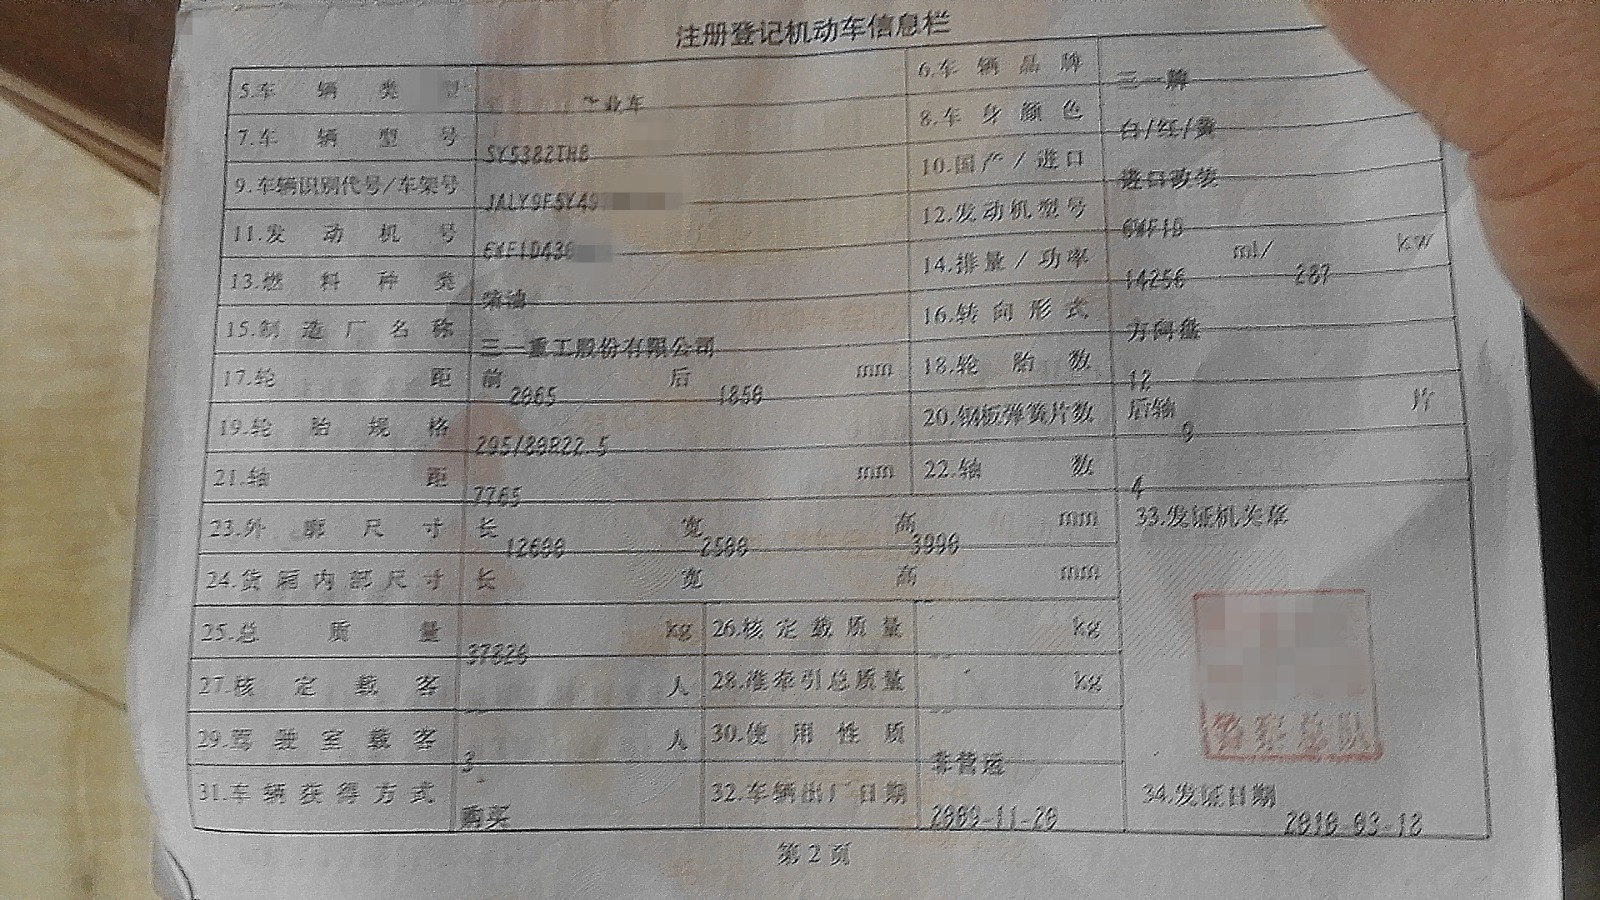 注册登记机动车信息栏
5.车辆类型 业车 6.车辆品牌 三一牌
7.车辆型号 SY5382THB 8.车身颜色 白/红/黄
9.车辆识别代号/车架号 JALY9F6Y49 10.国产/进口 进口改装
11.发动机号 6WF1D430 12.发动机型号 6WF1D
13.燃料种类 柴油 14.排量/功率 14256 ml/ 287 kw
15.制造厂名称 三一重工股份有限公司 16.转向形式 方向盘
17.轮距 前 2065 后 1850 mm 18.轮胎数 12
19.轮胎规格 295/80R22.5 20.钢板弹簧片数 后轴 9 片
21.轴距 7765 mm 22.轴数 4
23.外廓尺寸 长 12600 宽 2500 高 3990 mm 33.发证机关章
24.货厢内部尺寸 长 宽 高 mm
25.总质量 37820 kg 26.核定载质量 kg
27.核定载客 人 28.准牵引总质量 kg
29.驾驶室载客 3 人 30.使用性质 非营运
31.车辆获得方式 购买 32.车辆出厂日期 2009-11-20 34.发证日期 2010-03-18
第2页